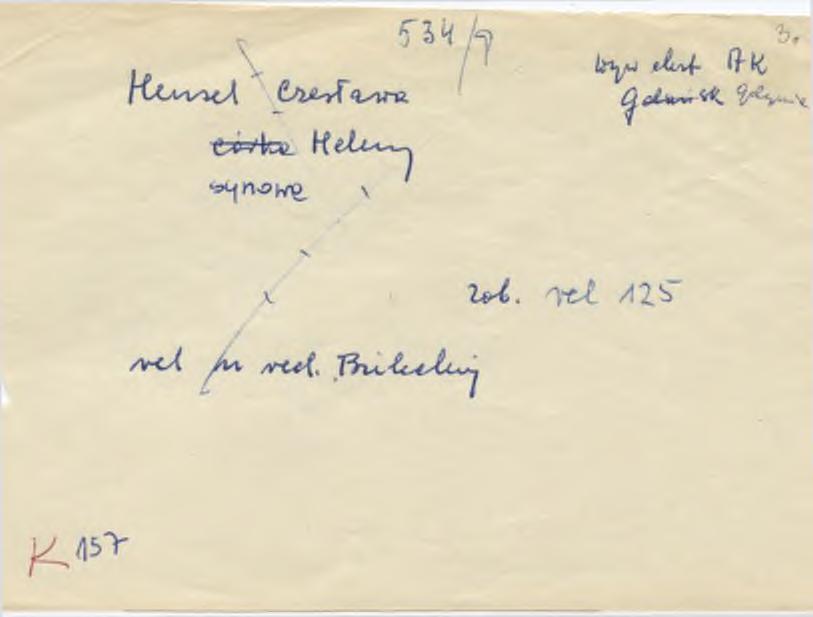 534/9
3.
wyw AK
Gdańsk Gdynia
Hensel Czesława
córka Heleny
synowa
zob. rel 125
rel m red.
K 157